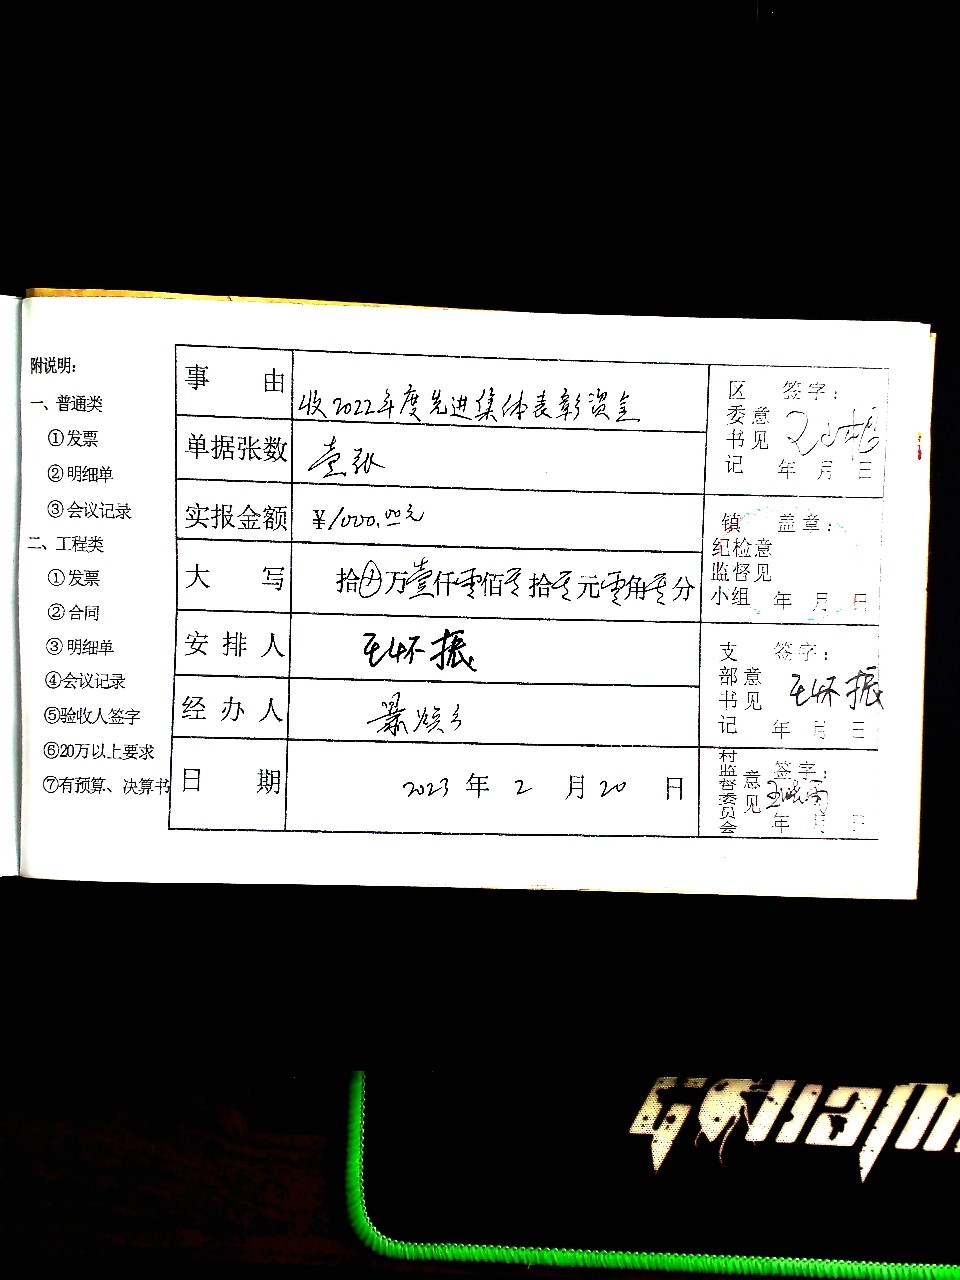 附说明：
一、普通类
①发票
②明细单
③会议记录
二、工程类
①发票
②合同
③明细单
④会议记录
⑤验收人签字
⑥20万以上要求
⑦有预算、决算书
事由 收2022年度先进集体表彰资金
单据张数 壹张
实报金额 ¥1000.00元
大写 拾万壹仟零佰零拾零元零角零分
安排人 王怀振
经办人
日期 2023年2月20日
区委书记意见 签字：
年月日
镇纪检监督小组意见 盖章：
年月日
支部书记意见 签字：王怀振
年月日
村监督委员会意见 签字：
年月日